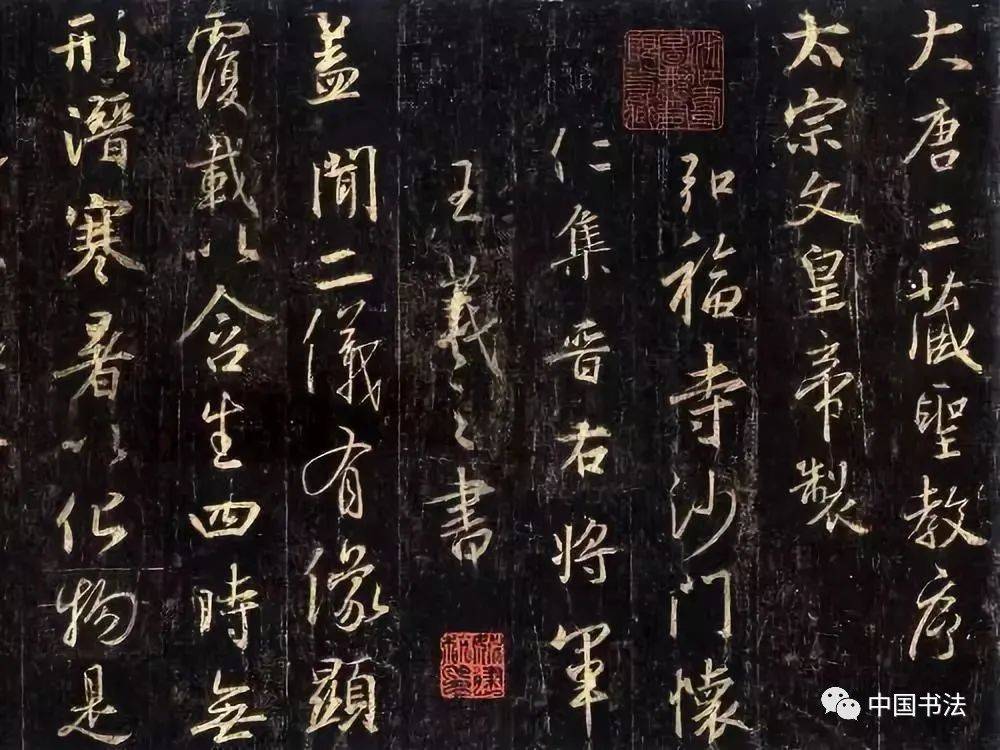 大唐三藏聖教序
太宗文皇帝製
弘福寺沙门懷
仁集晋右將軍
王羲之書
盖聞二儀有像顯
覆載以含生四時無
形潛寒暑以化物是
中国书法